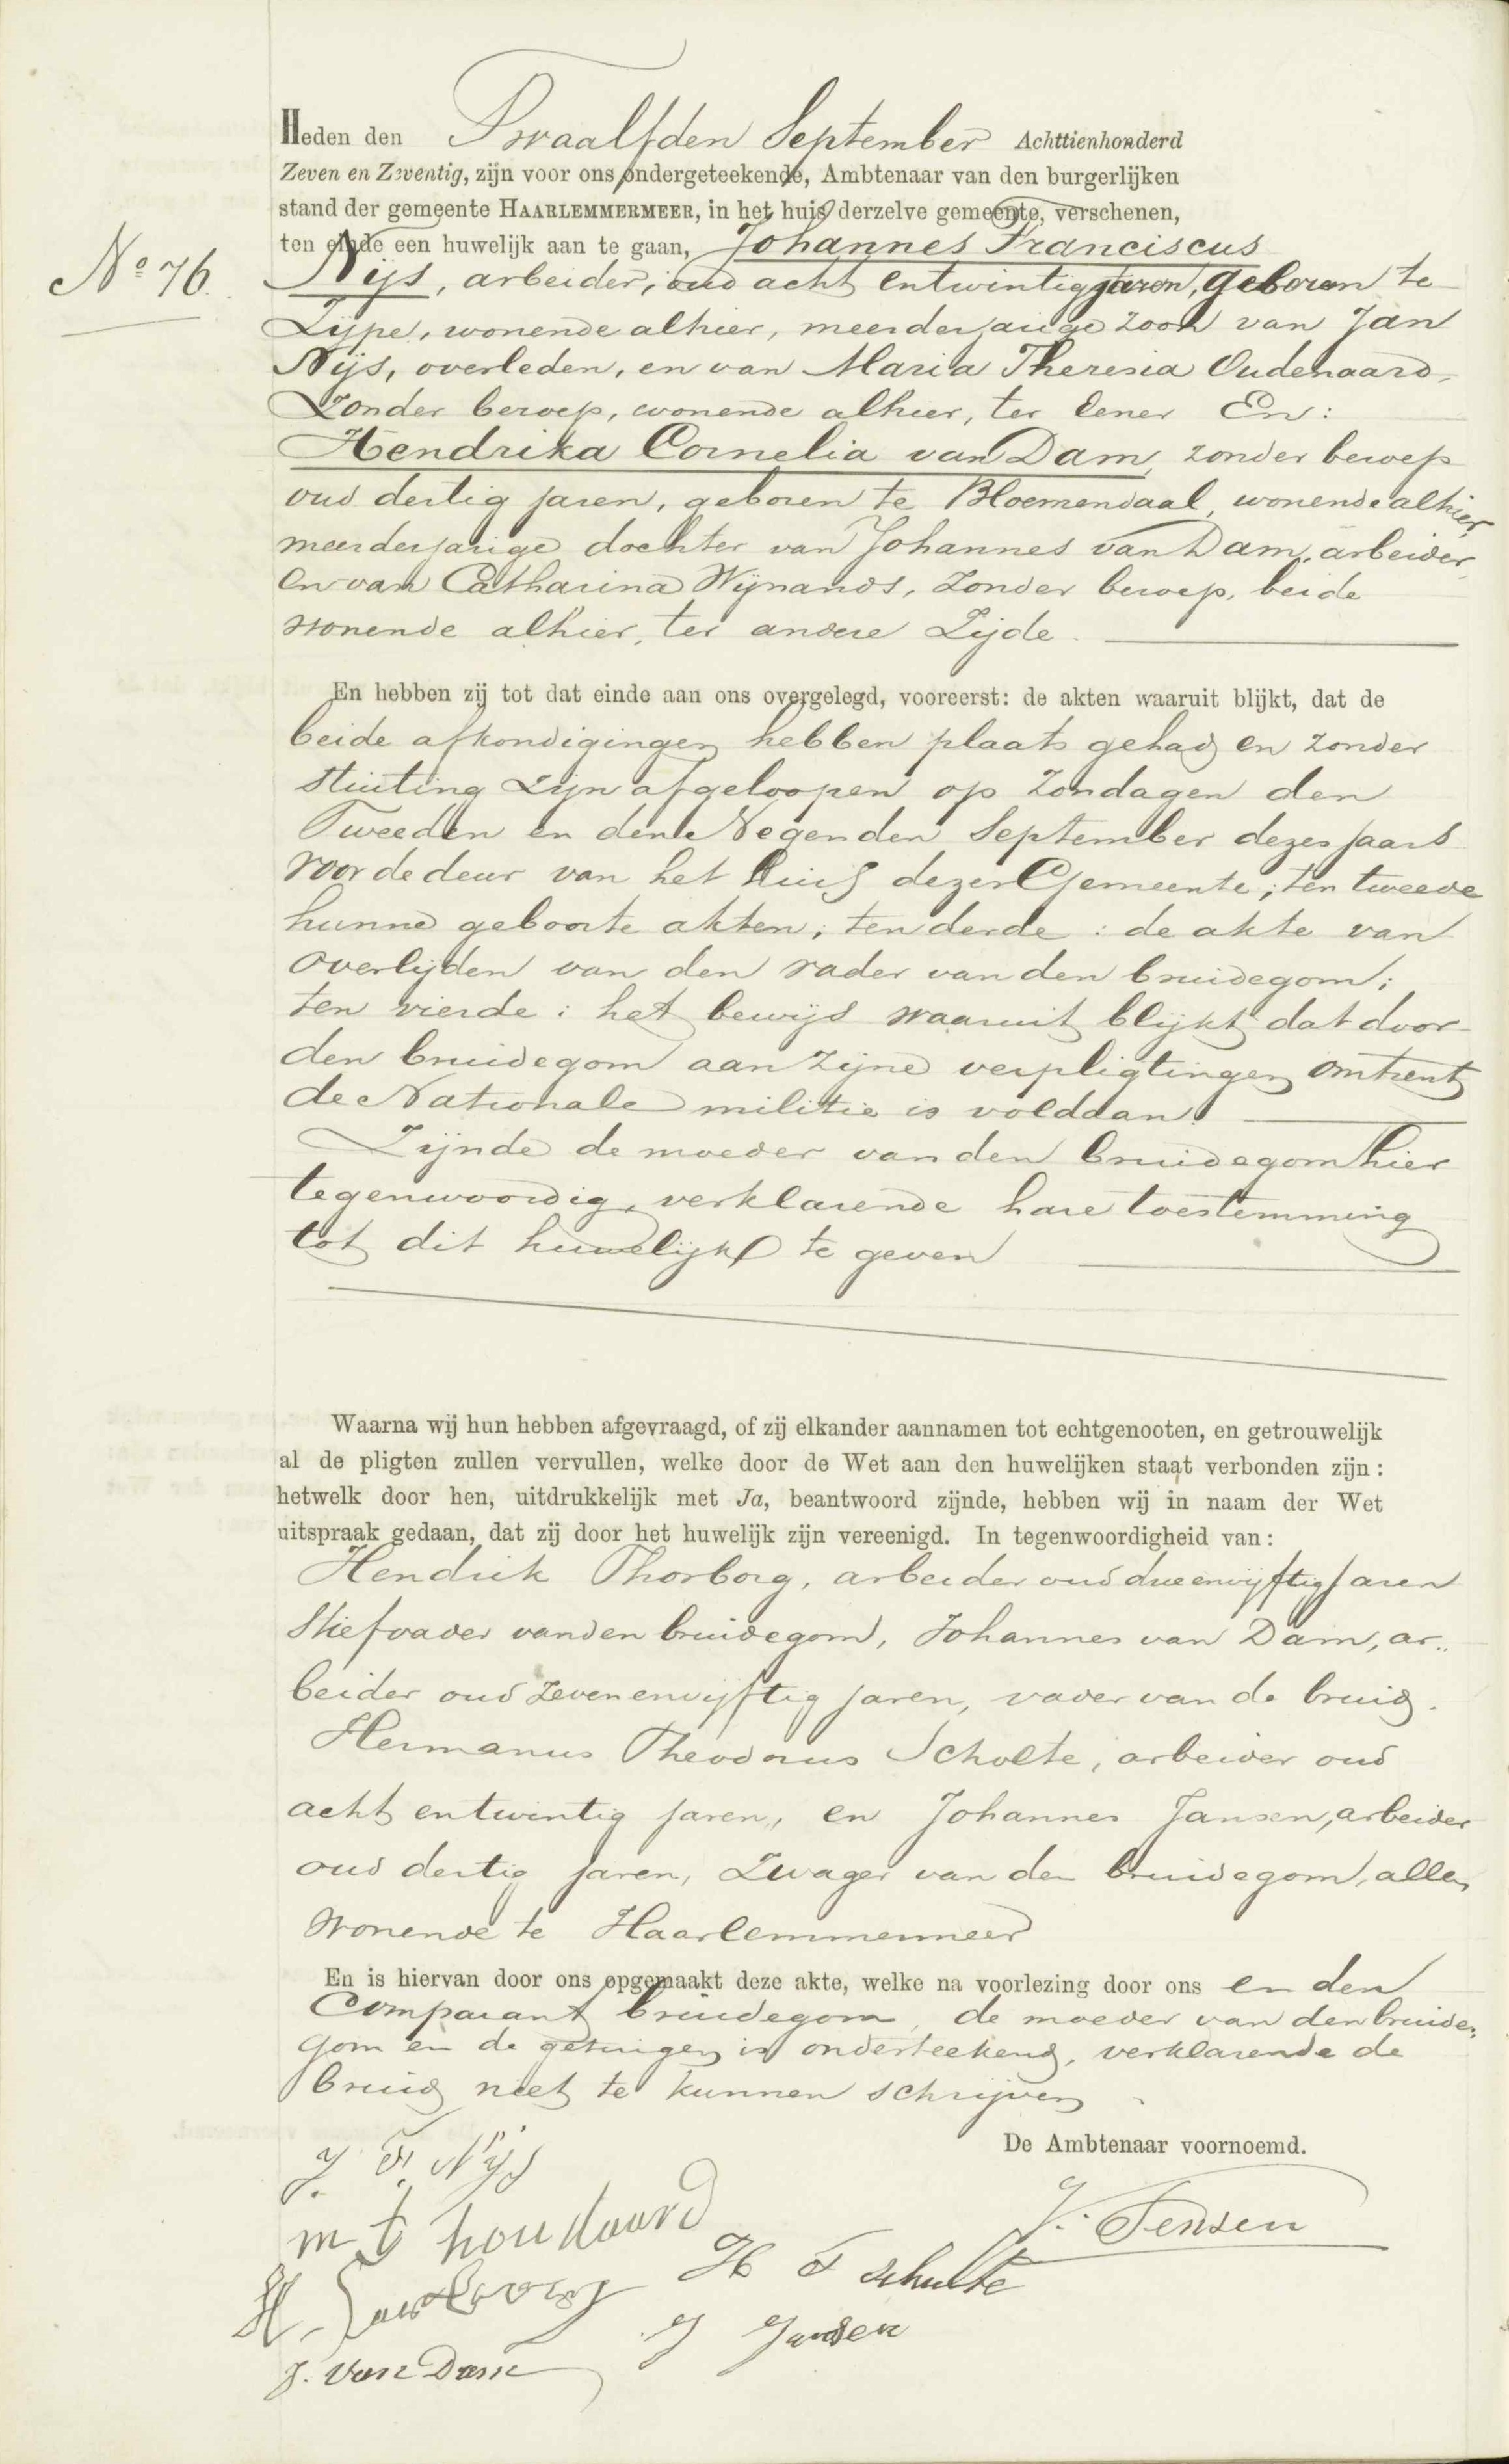 Heden den Twaalfden September Achttienhonderd
Zeven en Zeventig, zijn voor ons ondergeteekende, Ambtenaar van den burgerlijken
stand der gemeente HAARLEMMERMEER, in het huis derzelve gemeente, verschenen,
ten einde een huwelijk aan te gaan, Johannes Franciscus
No 76.
Nijs, arbeider, oud acht entwintig jaren, geboren te
Zijpe, wonende alhier, meerderjarige zoon van Jan
Nijs, overleden, en van Maria Theresia Oudenaard,
Zonder beroep, wonende alhier, ter eener En:
Hendrika Cornelia van Dam, zonder beroep
oud dertig jaren, geboren te Bloemendaal, wonende alhier,
meerderjarige dochter van Johannes van Dam, arbeider,
en van Catharina Wijnands, Zonder beroep, beide
wonende alhier, ter andere Zijde.
En hebben zij tot dat einde aan ons overgelegd, vooreerst: de akten waaruit blijkt, dat de
beide afkondigingen hebben plaats gehad en zonder
stuiting zijn afgeloopen op Zondagen den
Tweeden en den Negenden September dezes jaars
voor de deur van het huis dezer Gemeente; ten tweede
hunne geboorte akten; ten derde: de akte van
overlijden van den vader van den bruidegom;
ten vierde: het bewijs waaruit blijkt dat door
den bruidegom aan zijne verpligtingen omtrent
de Nationale militie is voldaan.
Zijnde de moeder van den bruidegom hier
tegenwoordig, verklarende hare toestemming
tot dit huwelijk te geven
Waarna wij hun hebben afgevraagd, of zij elkander aannamen tot echtgenooten, en getrouwelijk
al de pligten zullen vervullen, welke door de Wet aan den huwelijken staat verbonden zijn:
hetwelk door hen, uitdrukkelijk met Ja, beantwoord zijnde, hebben wij in naam der Wet
uitspraak gedaan, dat zij door het huwelijk zijn vereenigd. In tegenwoordigheid van:
Hendrik Thorborg, arbeider oud drie envijftig jaren
Stiefvader van den bruidegom, Johannes van Dam, ar..
beider oud zeven envijftig jaren, vader van de bruid.
Hermanus Theodorus Scholte, arbeider oud
acht entwintig jaren, en Johannes Jansen, arbeider
oud dertig jaren, Zwager van den bruidegom, allen
wonende te Haarlemmermeer
En is hiervan door ons opgemaakt deze akte, welke na voorlezing door ons en den
Comparant bruidegom, de moeder van den bruide,,
gom en de getuigen is onderteekend, verklarende de
bruid niet te kunnen schrijven.
De Ambtenaar voornoemd.
J. F. Nijs
m t houdaard
J. Jensen
H T Schulte
H.
J Jansen
J. van Dam